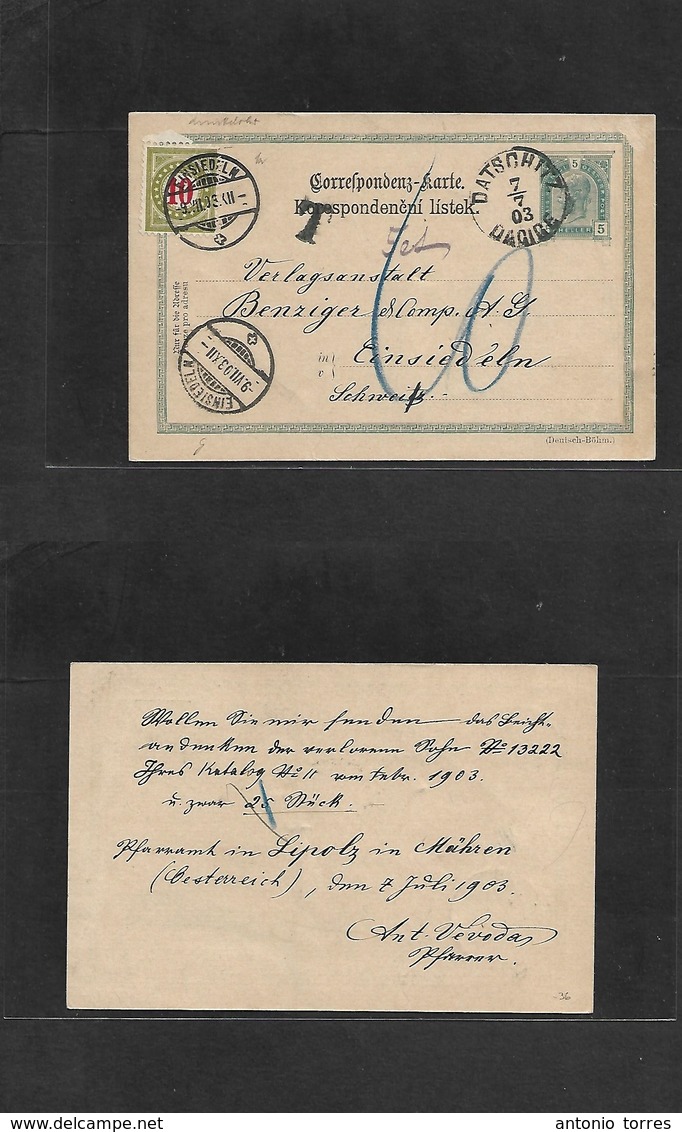 10
EINSIEDELN
-9.VII.03.XII-
Correspondenz-Karte.
Korespondenční lístek.
T
DATSCHITZ
7/7
03
DAČICE
5
5
HELLER
Nur für die Adresse
Verlagsanstalt
Benziger & Comp. A. G.
in
v
Einsiedeln
Schweiz
EINSIEDELN
-9.VII.03.XII-
(Deutsch-Böhm.)
Wollen Sie mir senden das Beicht-
andenken der verlorene Sohn No 13222
Ihres Katalog No 11 vom Febr. 1903.
u. zwar 25 Stück.
Pfarramt in Lipolz in Mähren
(Oesterreich), den 7 Juli 1903.
Ant. Vévoda
Pfarrer.
36
delcampe.net
antonio torres